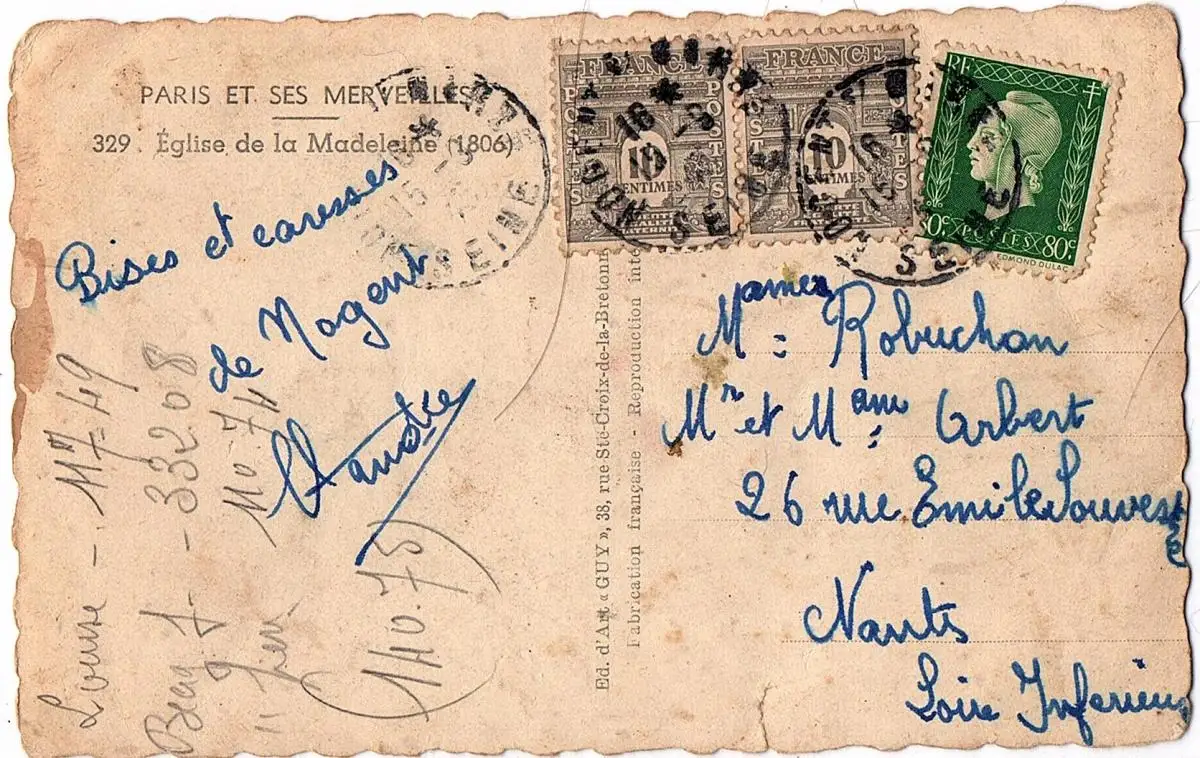 PARIS ET SES MERVEILLES
329. Église de la Madeleine (1806)
Bises et caresses
de Nogent
Claudie
Louise - 117 49
- 33208
110.74
(140.75)
Ed. d'Art « GUY », 38, rue Ste-Croix-de-la-Bretonn
Fabrication française - Reproduction inte
FRANCE
POSTES
10
CENTIMES
FRANCE
POSTES
10
CENTIMES
RF
POSTES 80c
EDMOND DULAC
NOGENT
SEINE
Mames
M = Robuchon
Mr et Mam Arbert
26 rue Emile Souvestre
Nantes
Loire Inférieu